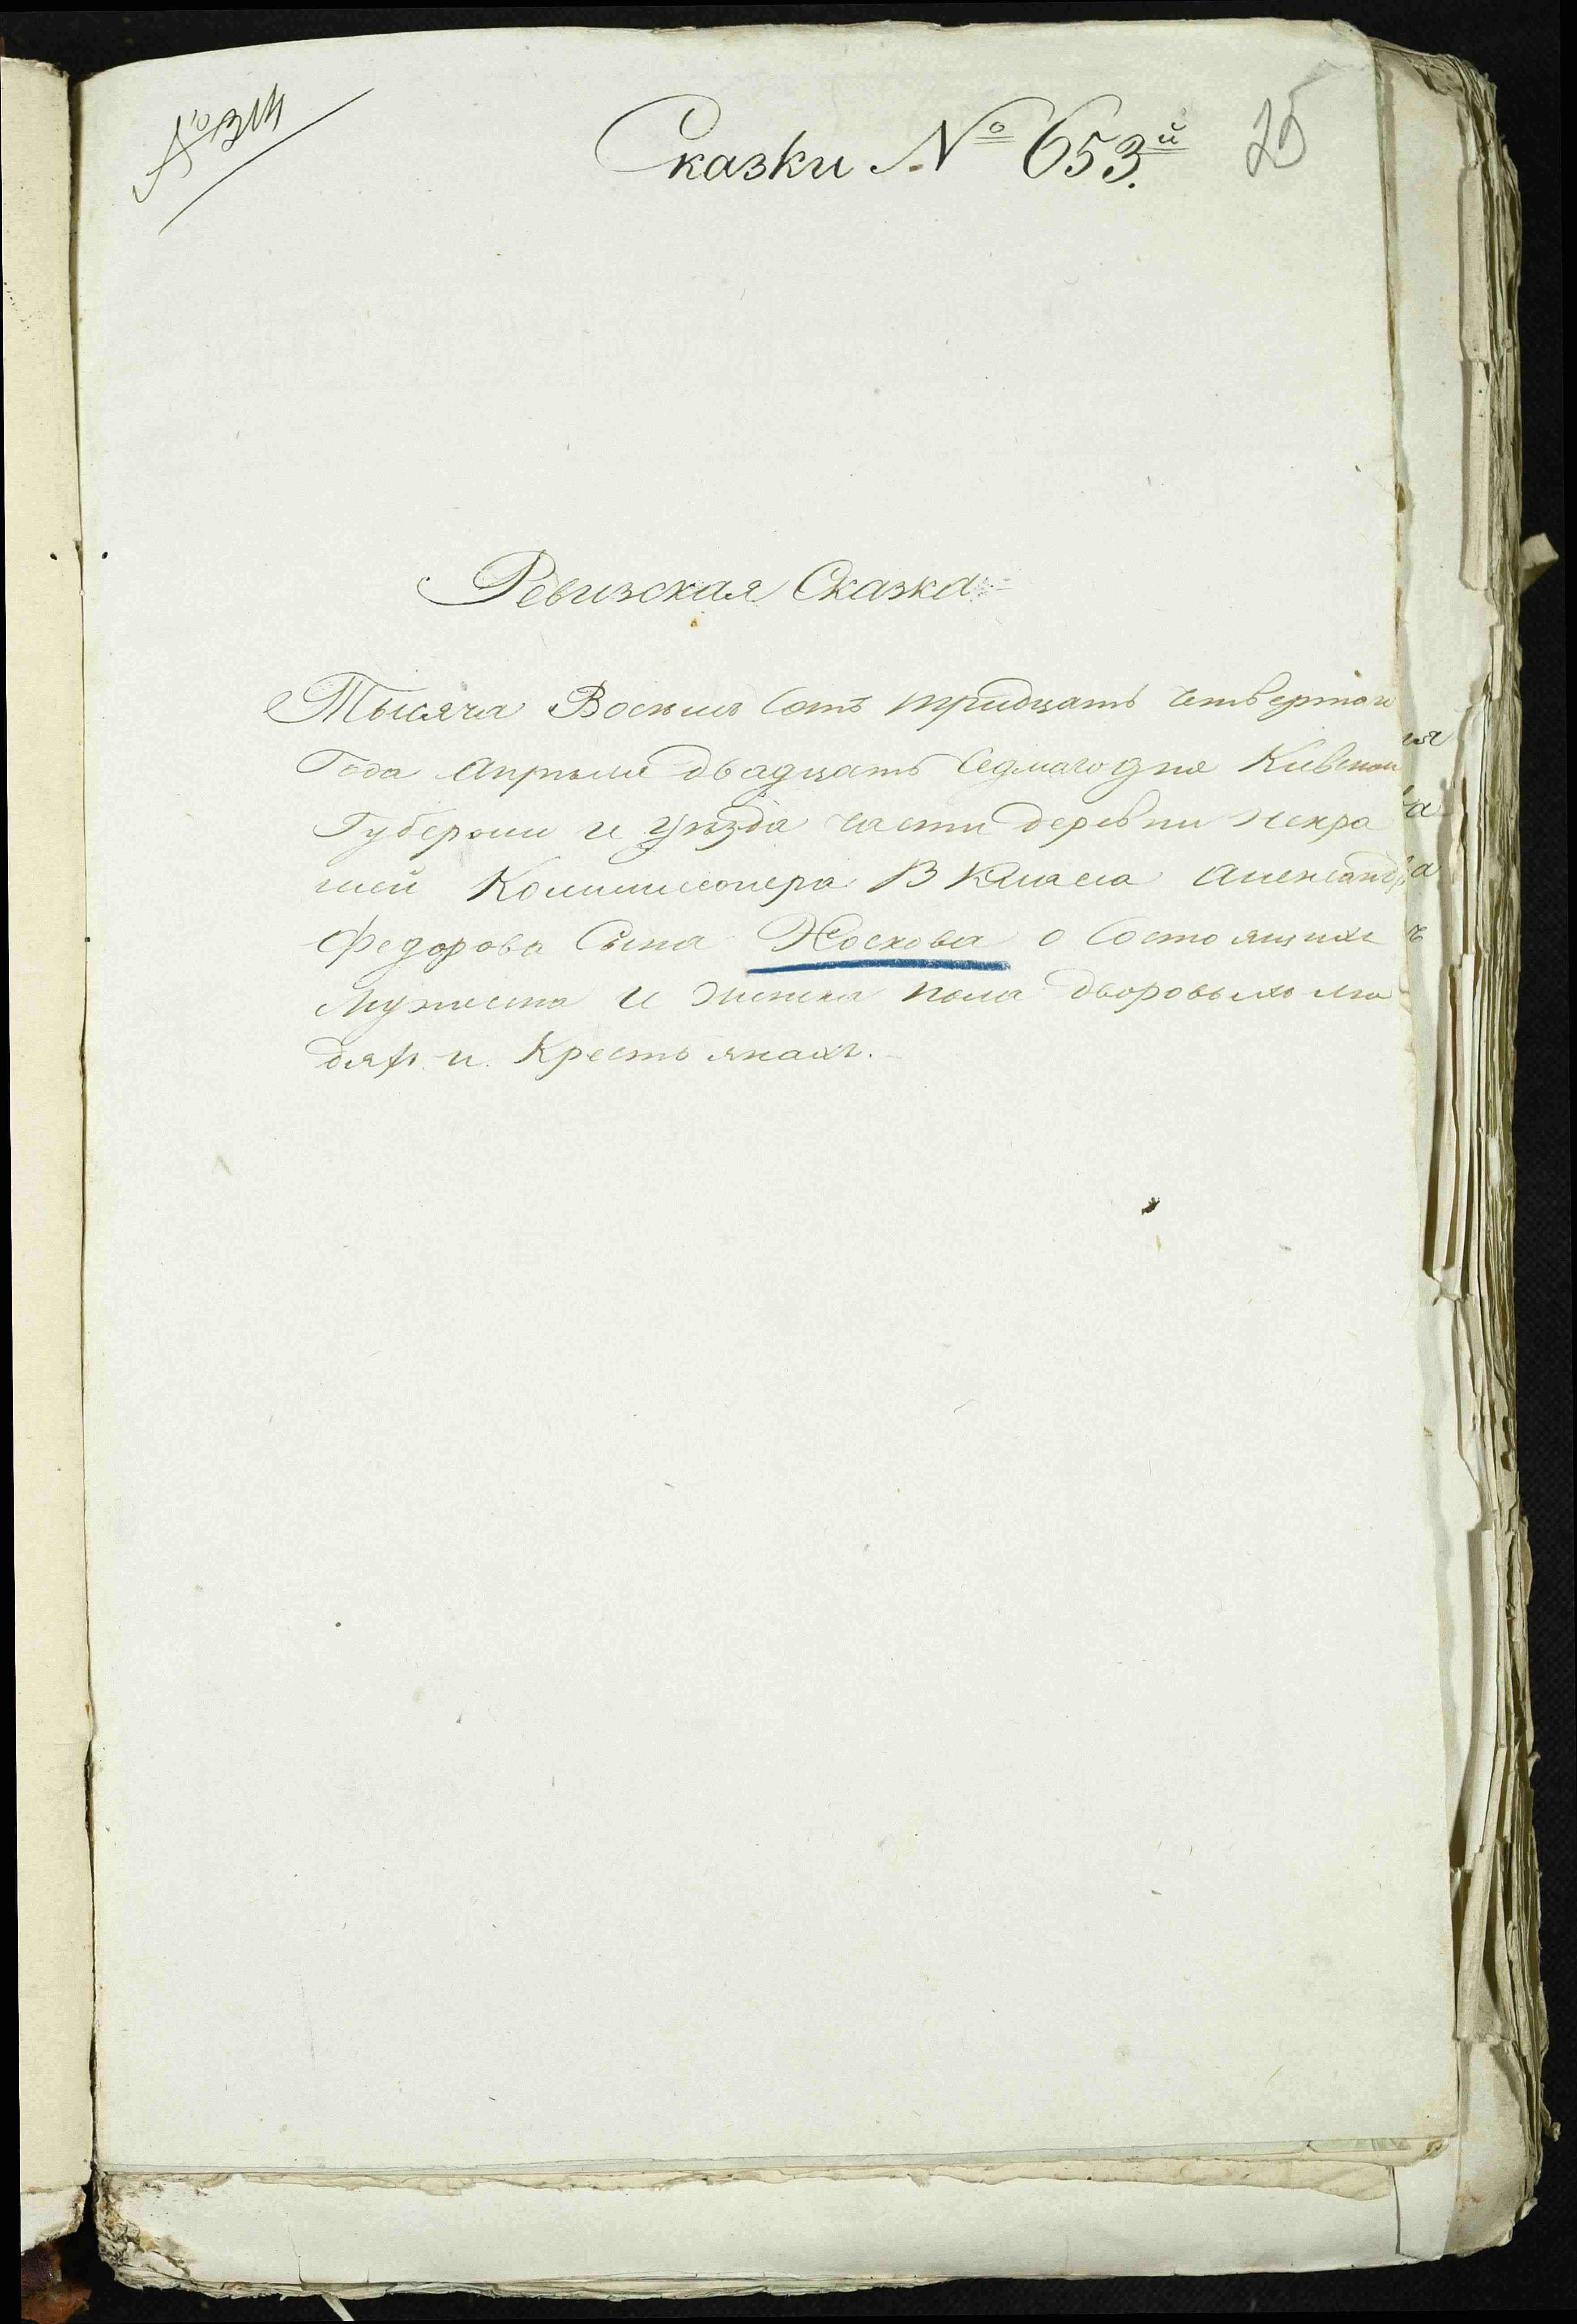 № 314
Сказки № 653й
25
Ревизская Сказка
Тысяча Восемь Сотъ тридцать четвертаго
Года Апреля двадцать Седмаго дня Киевской
Губернии и уезда части деревни Некра
шей Коммиссонера В Класса Александра
Федорова Сына Носкова о Состоящихъ
Мужеска и женска пола дворовыхъ лю
дяхъ и Крестьянахъ.